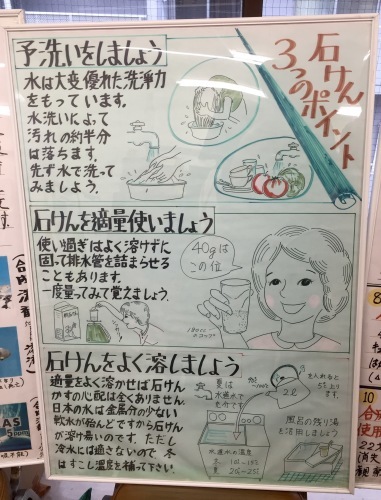 石けん
3つのポイント
予洗いをしましょう
水は大変優れた洗浄力
をもって います。
水洗いによって
汚れの約半分
は落ちます。
先ず水で洗って
みましょう。
石けんを適量使いましょう
使い過ぎはよく溶けずに
固って排水管を詰まらせる
こともあります。
一度量ってみて覚えましょう。
40gは
この位
石けんをよく溶しましょう
適量をよく溶かせば石けん
かすの心配は全くありません。
日本の水は金属分の少ない
軟水が殆んどですから石けん
が溶け易いのです。ただし
冷水には過さないので 冬
はすこし温度を補って下さい。
夏は
水道水で
2ℓ
を入れると
風呂の残り湯
を活用しましょう
水道水の温度
10